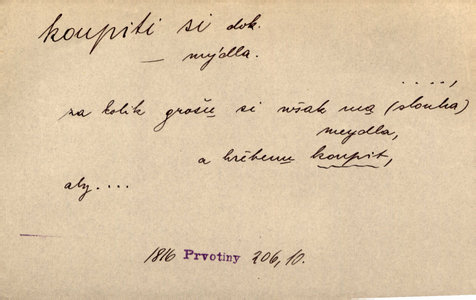 koupiti si dok.
— mýdla.
....,
za kolik grošů si wšak má (slouha)
meydla,
a hřebenu koupit,
aby....
1816 Prvotiny 206, 10.